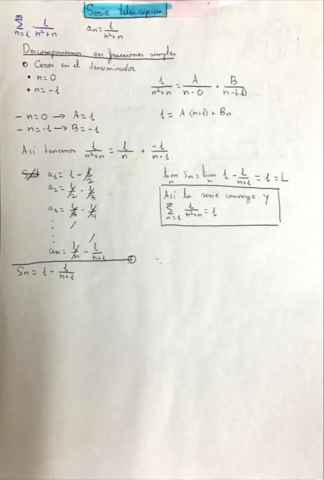 Serie telescópica
∞ Σ n=1 1/(n²+n)   aₙ = 1/(n²+n)
Descomponemos en fracciones simples
• Ceros en el denominador
• n=0
• n=-1
1/(n²+n) = A/(n-0) + B/(n-(-1))
- n=0 → A=1   1 = A(n+1) + Bn
- n=-1 → B=-1
Así tenemos 1/(n²+n) = 1/n + -1/(n+1)
a₁ = 1 - 1/2
a₂ = 1/2 - 1/3
a₃ = 1/3 - 1/4
aₙ = 1/n - 1/(n+1)
Sₙ = 1 - 1/(n+1)
lim n Sₙ = lim n 1 - 1/(n+1) = 1 = L
Así la serie converge y
∞ Σ n=1 1/(n²+n) = 1